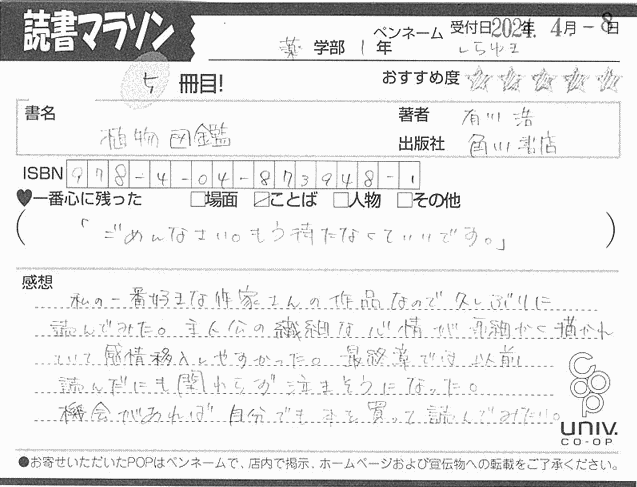 読書マラソン
ペンネーム 受付日2024年 4月-8日
薬 学部 1年 しらゆき
5 冊目!
おすすめ度 ☆☆☆☆☆
書名 植物図鑑
著者 有川 浩
出版社 角川書店
ISBN 978-4-04-873948-1
♥一番心に残った □場面 ☑ことば □人物 □その他
(「ごめんなさい。もう待たなくていいです。」)
感想
私の一番好きな作家さんの作品なので久しぶりに
読んでみた。主人公の繊細な心情が事細かく描かれ
ていて感情移入しやすかった。最終章では以前
読んだにも関わらず泣きそうになった。
機会があれば自分でも本を買って読んでみたい。
coop
UNIV.
CO-OP
●お寄せいただいたPOPはペンネームで、店内で掲示、ホームページおよび宣伝物への転載をご了承ください。